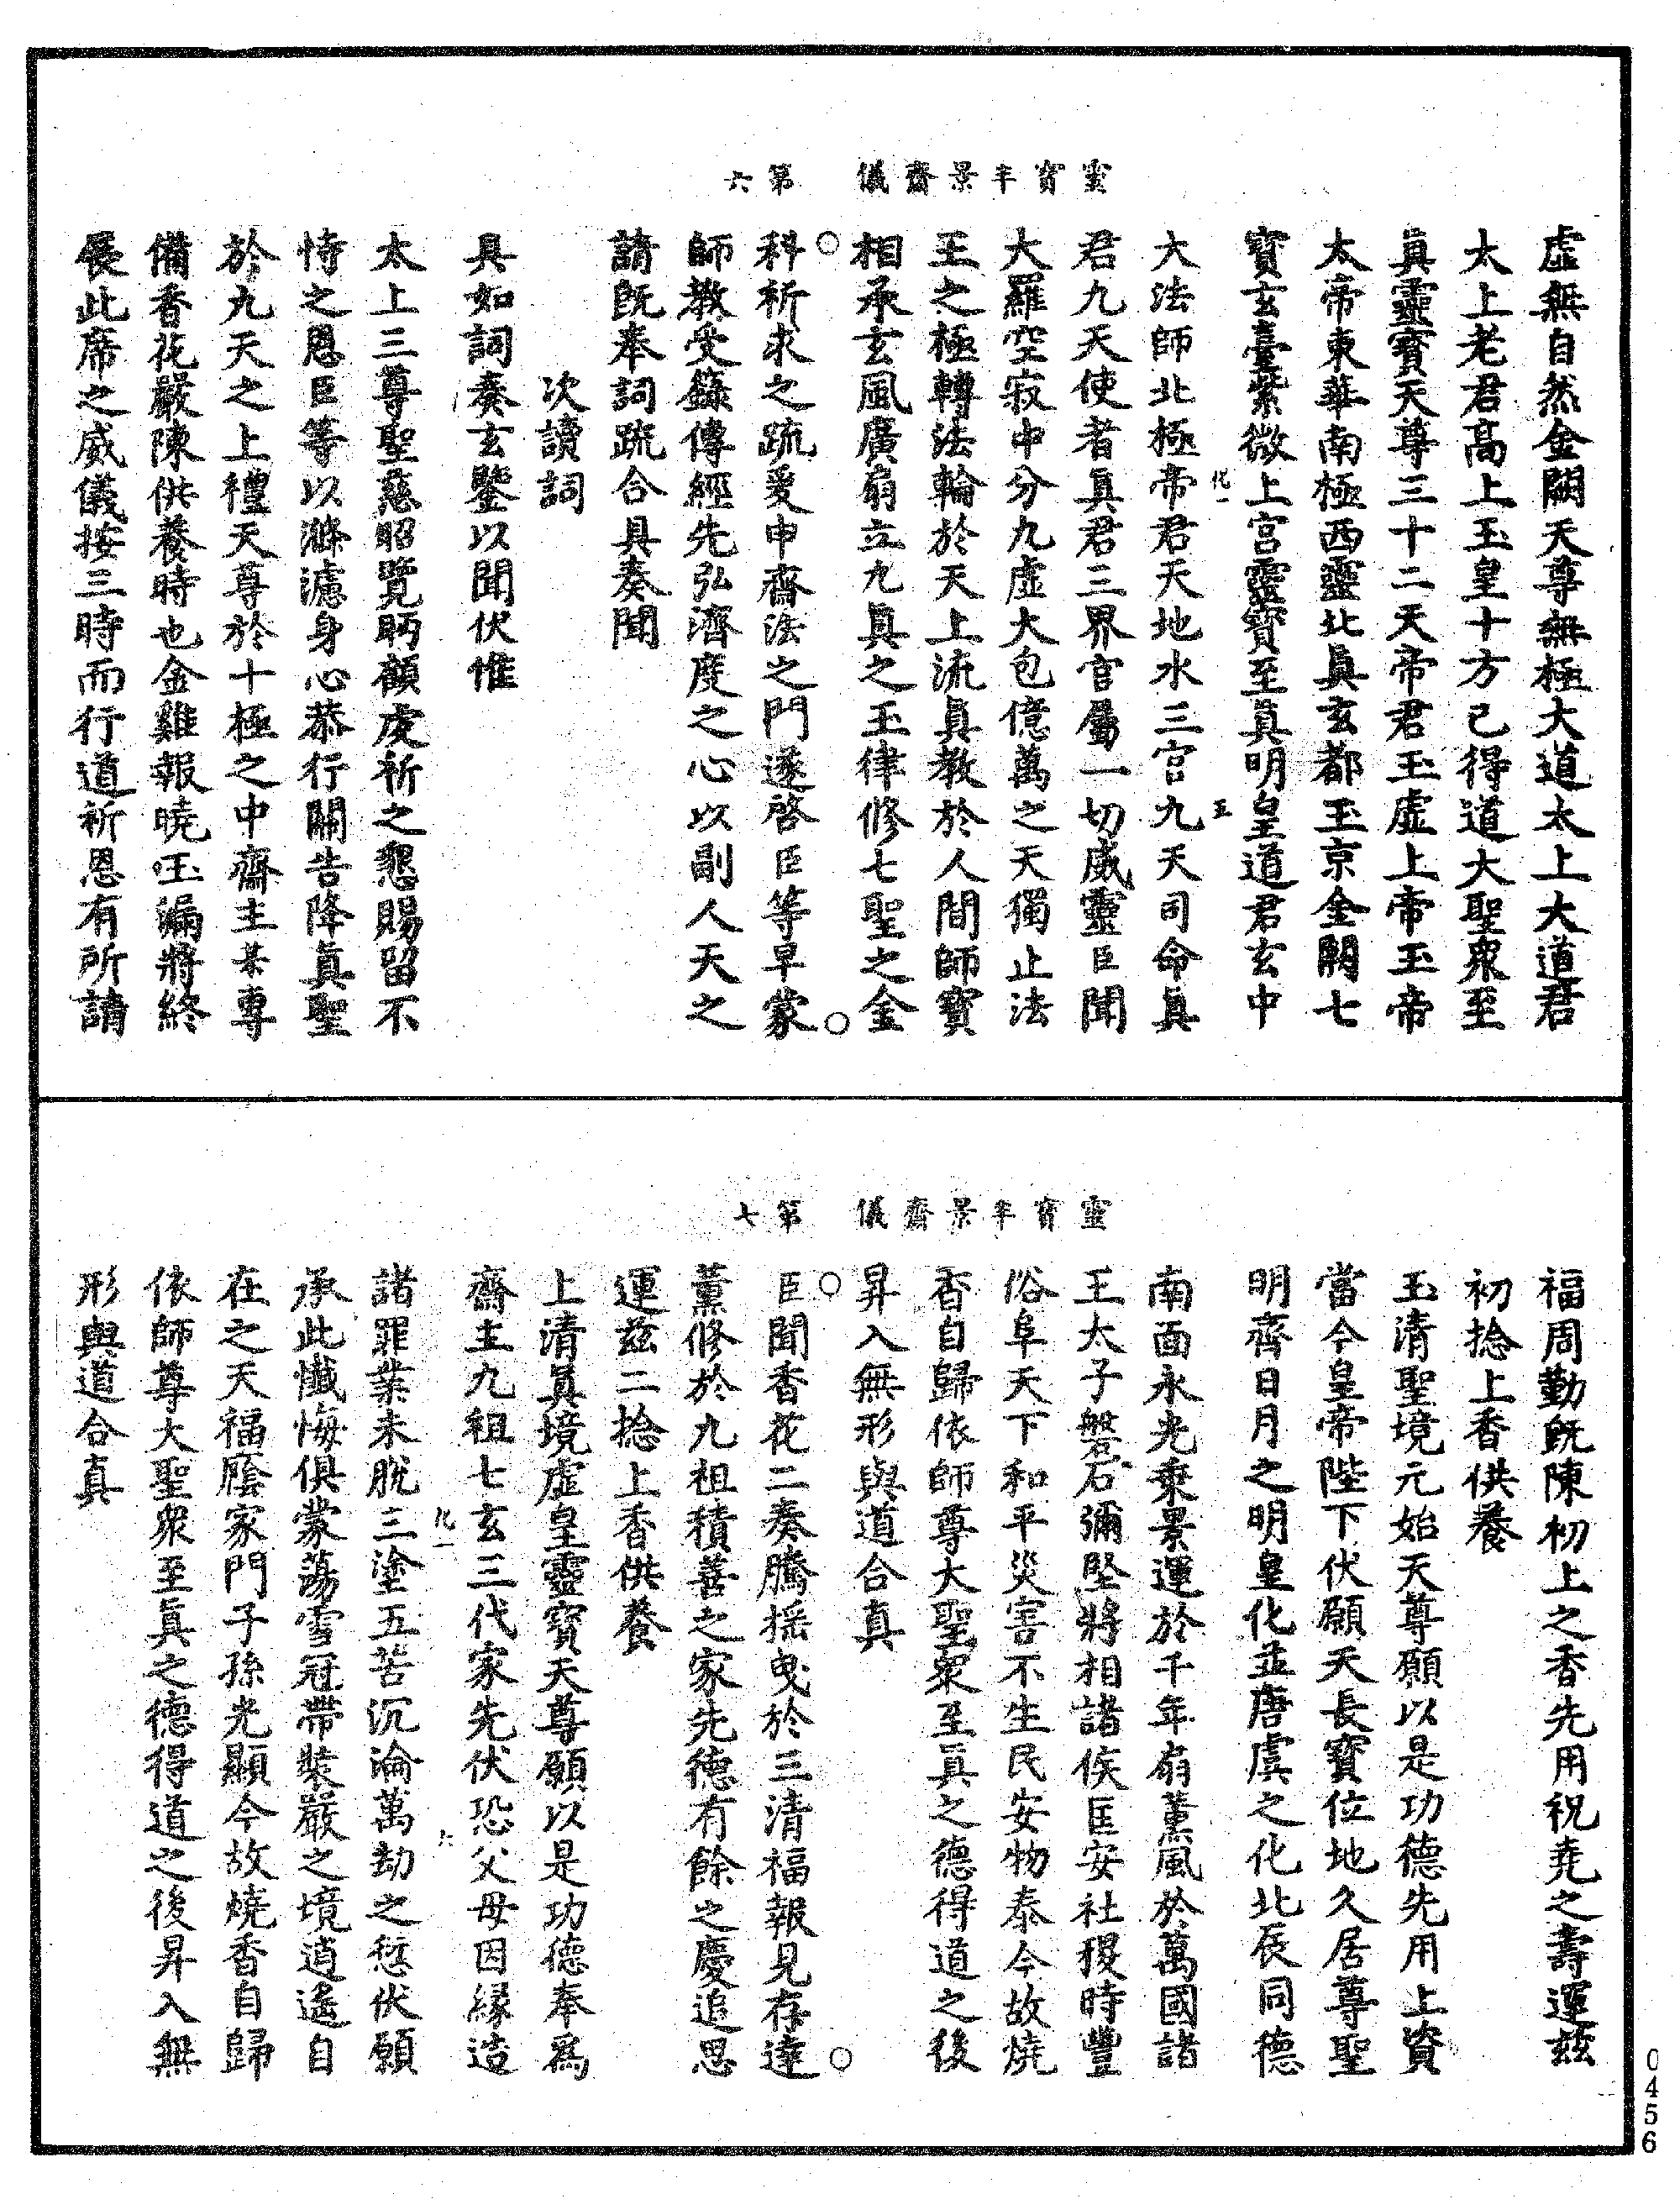 靈寶半景齋儀　第六
虛無自然金闕天尊無極大道太上大道君
太上老君高上玉皇十方已得道大聖眾至
真靈寶天尊三十二天帝君玉虛上帝玉帝
太帝東華南極西靈北真玄都玉京金闕七
寶玄臺紫微上宮靈寶至真明皇道君玄中
化一　五
大法師北極帝君天地水三官九天司命真
君九天使者真君三界官屬一切威靈臣聞
大羅空寂中分九虛大包億萬之天獨止法
王之極轉法輪於天上流真教於人間師寶
相承玄風廣扇立九真之玉律修七聖之金
科祈求之疏爰申齋法之門遂啓臣等早蒙
師教受籙傳經先弘濟度之心以副人天之
請既奉詞疏合具奏聞
次讀詞
具如詞奏玄鑒以聞伏惟
太上三尊聖慈昭覽眄顧虔祈之懇賜留不
恃之恩臣等以滌濾身心恭行關告降真聖
於九天之上禮天尊於十極之中齋主某專
備香花嚴陳供養時也金雞報曉玉漏將終
展此席之威儀按三時而行道祈恩有所請
靈寶半景齋儀　第七
福周勤既陳初上之香先用祝堯之壽運茲
初捻上香供養
玉清聖境元始天尊願以是功德先用上資
當今皇帝陛下伏願天長寶位地久居尊聖
明齊日月之明皇化並唐虞之化北辰同德
南面永光乘景運於千年扇薰風於萬國諸
王太子磐石彌堅將相諸侯匡安社稷時豐
俗阜天下和平災害不生民安物泰今故燒
香自歸依師尊大聖眾至真之德得道之後
昇入無形與道合真
臣聞香花二奏騰搖曳於三清福報見存達
薰修於九祖積善之家先德有餘之慶追思
運茲二捻上香供養
上清真境虛皇靈寶天尊願以是功德奉為
齋主九祖七玄三代家先伏恐父母因緣造
化一　六
諸罪業未脫三塗五苦沉淪萬劫之愆伏願
承此懺悔俱蒙蕩雪冠帶裝嚴之境逍遙自
在之天福廕家門子孫光顯今故燒香自歸
依師尊大聖眾至真之德得道之後昇入無
形與道合真
0456